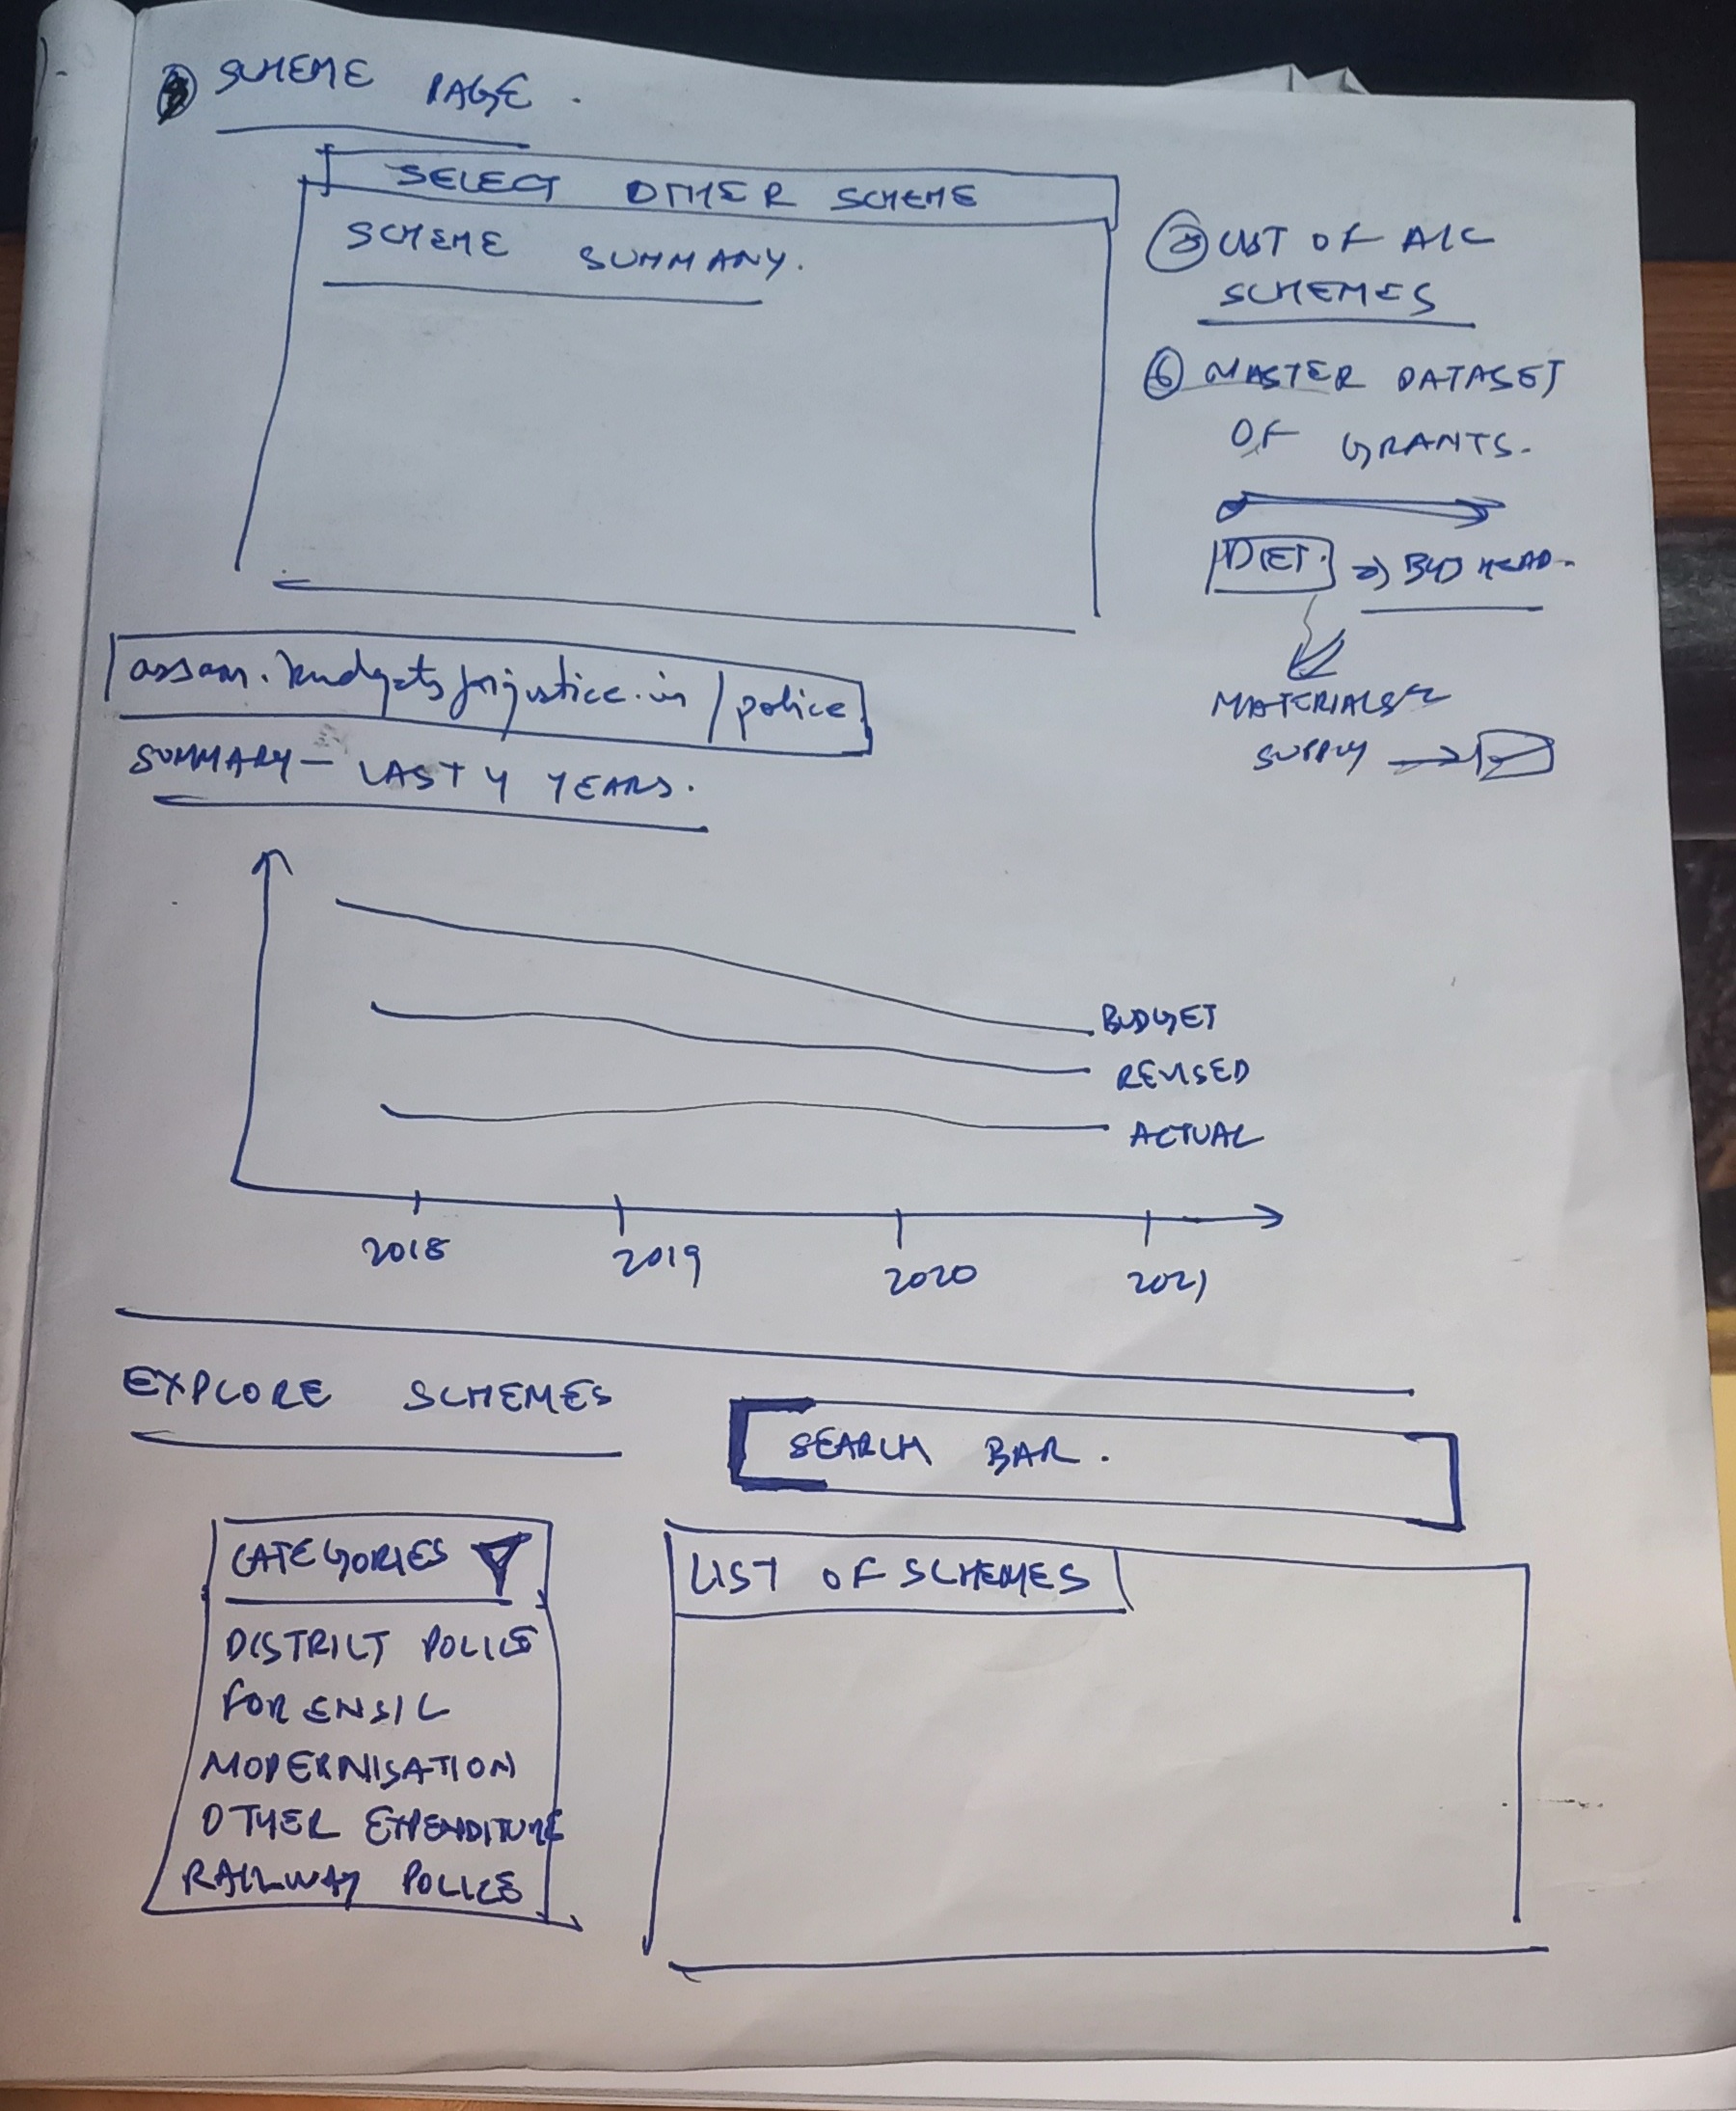 SCHEME PAGE.
SELECT OTHER SCHEME
SCHEME SUMMARY.
LIST OF ALL
SCHEMES
⑥ MASTER DATASET
OF GRANTS.
DIET. ⇒ BUD HEAD.
MATERIALS &
SUPPLY →
assam.budgetsforjustice.in/police
SUMMARY - LAST 4 YEARS.
BUDGET
REVISED
ACTUAL
2018 2019 2020 2021
EXPLORE SCHEMES
SEARCH BAR.
CATEGORIES
DISTRICT POLICE
FORENSIC
MODERNISATION
OTHER EXPENDITURE
RAILWAY POLICE
LIST OF SCHEMES